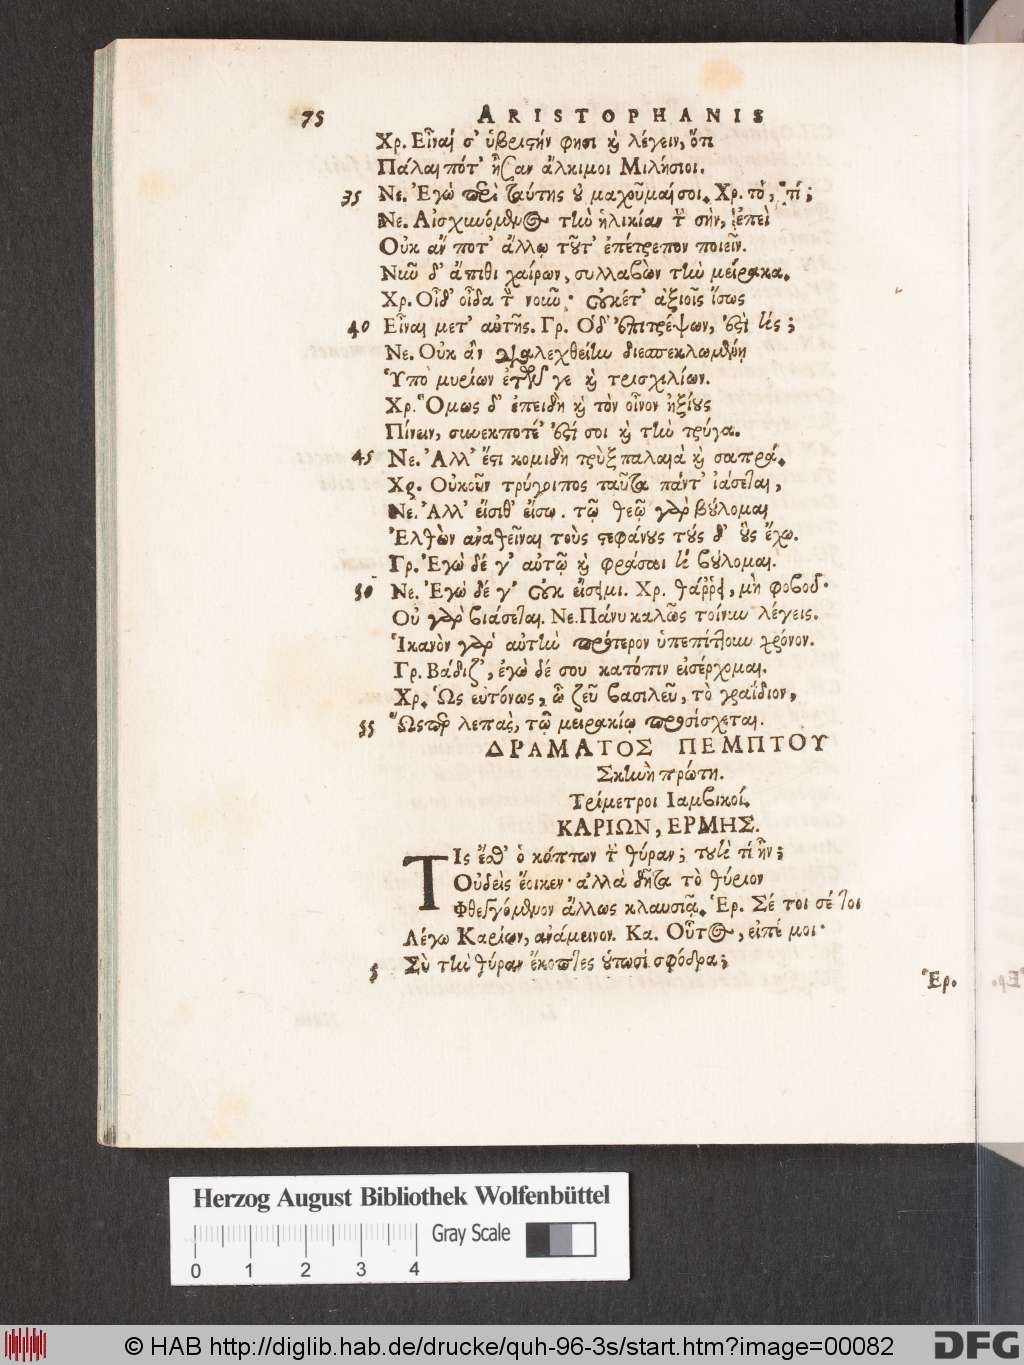 75 ARISTOPHANIS
Χρ. Εἶναί σ' ὑβριστήν φησι καὶ λέγειν, ὅτι
Πάλαι πότ' ἦσαν ἄλκιμοι Μιλήσιοι.
35 Νε. Ἐγὼ περὶ ταύτης οὐ μαχοῦμαί σοι. Χρ. τὸ, τί;
Νε. Αἰσχυνόμενος τὴν ἡλικίαν τὴν σὴν, ἐπεὶ
Οὐκ ἄν ποτ' ἄλλῳ τοῦτ' ἐπέτρεπον ποιεῖν.
Νῦν δ' ἄπιθι χαίρων, συλλαβὼν τὴν μείρακα.
Χρ. Οἶδ' οἶδα τὸν νοῦν· οὐκέτ' ἀξιοῖς ἴσως
40 Εἶναι μετ' αὐτῆς. Γρ. Ὁ δ' ἐπιτρέψων, ἐστὶ τίς;
Νε. Οὐκ ἂν διαλεχθείην διεσπεκλωμένῃ
Ὑπὸ μυρίων ἐτῶν γε καὶ τρισχιλίων.
Χρ. Ὅμως δ' ἐπειδὴ καὶ τὸν οἶνον ἠξίους
Πίνειν, συνεκποτέ' ἐστί σοι καὶ τὴν τρύγα.
45 Νε. Ἀλλ' ἔστι κομιδῇ τρὺξ παλαιὰ καὶ σαπρά.
Χρ. Οὐκοῦν τρύγοιπος ταῦτα πάντ' ἰάσεται,
Νε. Ἀλλ' εἴσιθ' εἴσω. τῷ θεῷ γὰρ βούλομαι
Ἐλθὼν ἀναθεῖναι τοὺς στεφάνους τούς δ' οὓς ἔχω.
Γρ. Ἐγὼ δέ γ' αὐτῷ καὶ φράσαι τί βούλομαι.
50 Νε. Ἐγὼ δέ γ' οὐκ εἴσειμι. Χρ. θάῤῥει, μὴ φοβοῦ·
Οὐ γὰρ βιάσεται. Νε. Πάνυ καλῶς τοίνυν λέγεις.
Ἱκανὸν γὰρ αὐτὴν πρότερον ὑπεπίττουν χρόνον.
Γρ. Βάδιζ', ἐγὼ δέ σου κατόπιν εἰσέρχομαι.
Χρ. Ὡς εὐτόνως, ὦ ζεῦ βασιλεῦ, τὸ γραΐδιον,
55 Ὥσπερ λεπὰς, τῷ μειρακίῳ προσίσχεται.
ΔΡΑΜΑΤΟΣ ΠΕΜΠΤΟΥ
Σκηνὴ πρώτη.
Τρίμετροι Ἰαμβικοί.
ΚΑΡΙΩΝ, ΕΡΜΗΣ.
Τὶς ἔσθ' ὁ κόπτων τὴν θύραν; τουτὶ τί ἦν;
Οὐδεὶς ἔοικεν· ἀλλὰ δῆτα τὸ θύριον
Φθεγγόμενον ἄλλως κλαυσιᾷ. Ἑρ. Σέ τοι σέ τοι
Λέγω Καρίων, ἀνάμεινον. Κα. Οὗτος, εἰπέ μοι·
5 Σὺ τὴν θύραν ἔκοπτες οὑτωσὶ σφόδρα;
Ἑρ.
Herzog August Bibliothek Wolfenbüttel
Gray Scale
0 1 2 3 4
© HAB http://diglib.hab.de/drucke/quh-96-3s/start.htm?image=00082
DFG